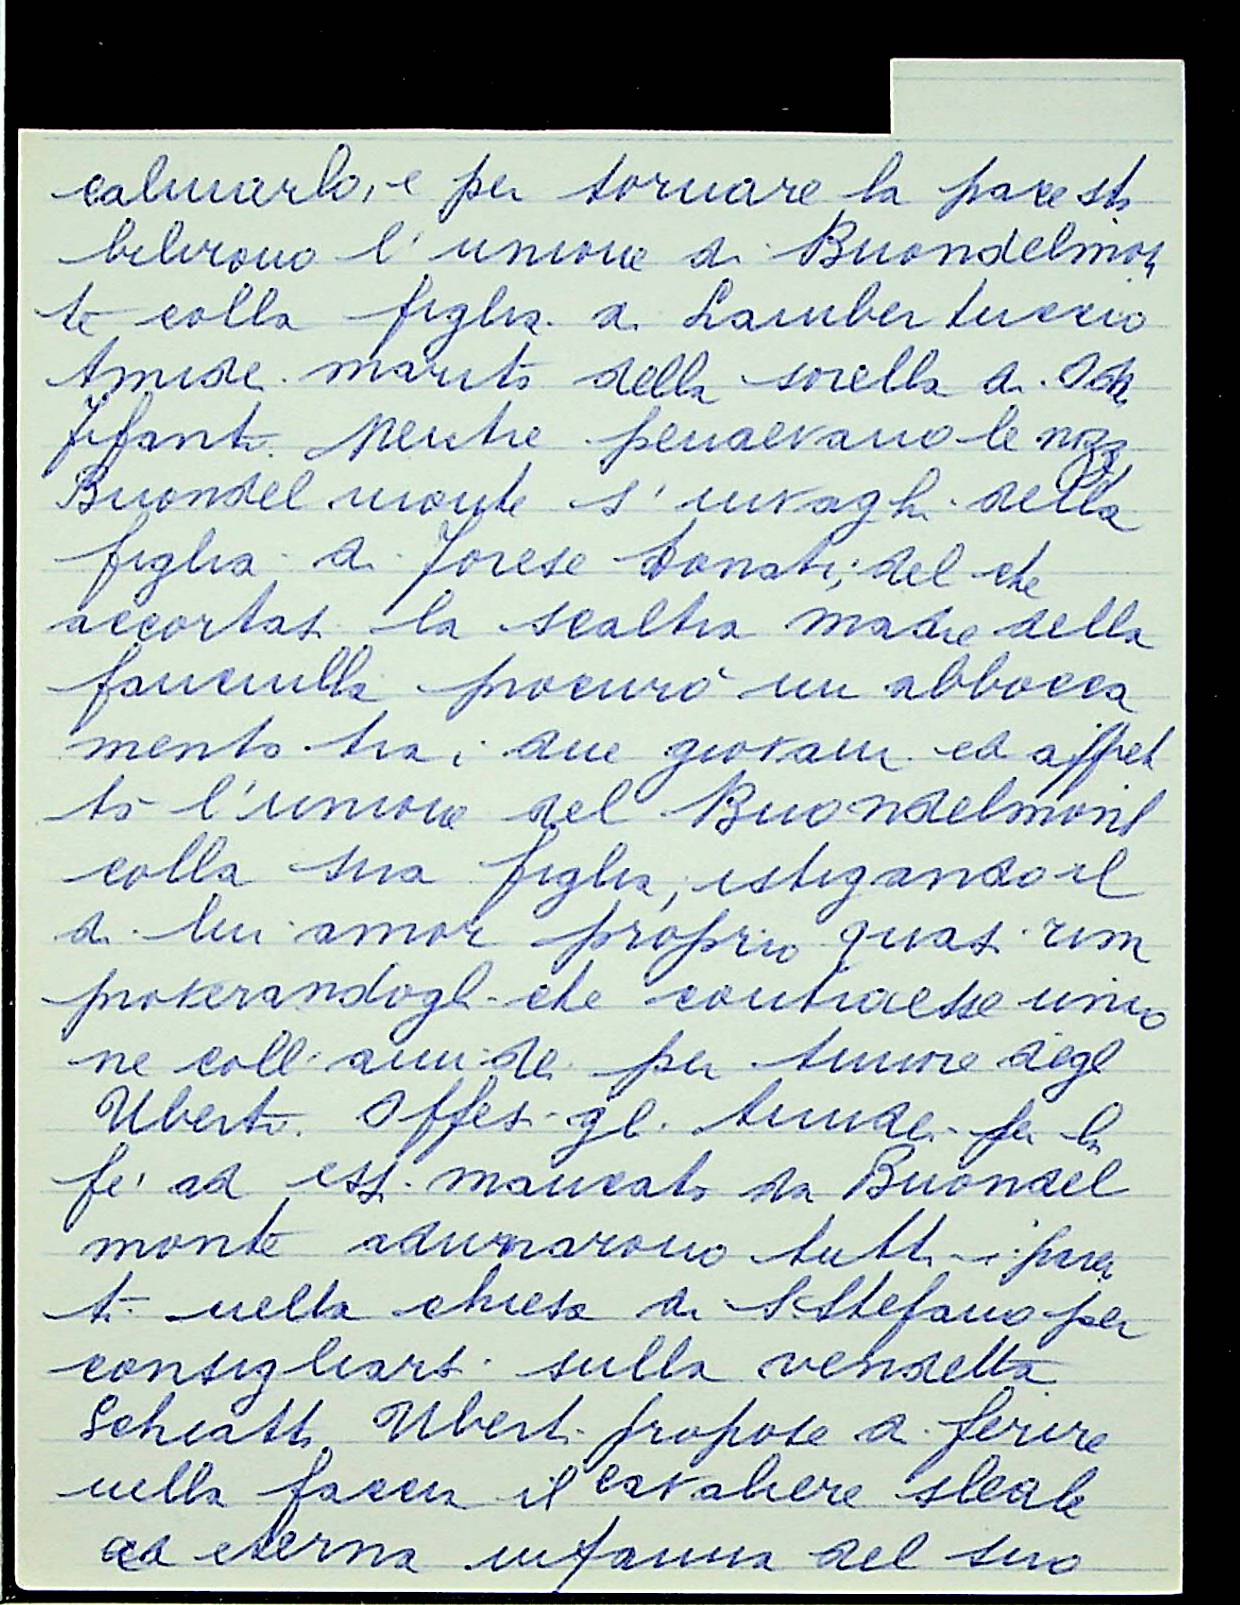 calmarlo, e per tornare la pace sta
bilirono l'unione di Buondelmon
te colla figlia di Lambertuccio
Amidei marito della sorella di Odo
Fifanti. Mentre pendevano le nozze
Buondelmonte s'invaghì della
figlia di Forese Donati; del che
accortasi la scaltra madre della
fanciulla procurò un abbocca
mento tra i due giovani ed affret
tò l'unione del Buondelmonte
colla sua figlia, istigando il
di lui amor proprio quasi rim
proverandogli che contraesse unio
ne coll'Amidei per timore degli
Uberti. Offesi gli Amidei per la
fe' ad essi mancata da Buondel
monte adunarono tutti i paren
ti nella chiesa di S. Stefano per
consigliarsi sulla vendetta
Schiatta Uberti propose di ferire
nella faccia il cavaliere sleale
ad eterna infamia del suo